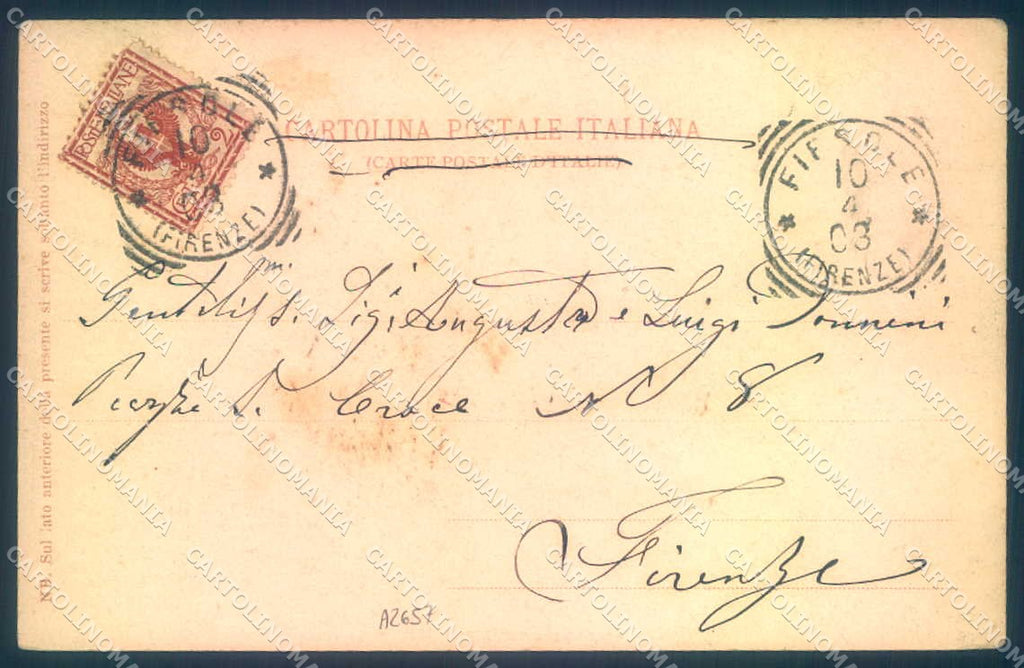 POSTE ITALIANE
2
FIESOLE
10
4
03
(FIRENZE)
CARTOLINA POSTALE ITALIANA
(CARTE POSTALE D'ITALIE)
FIESOLE
10
4
03
(FIRENZE)
NB. Sul lato anteriore della presente si scrive soltanto l'indirizzo
Gentiliss.mi Sig.i Augusta e Luigi
S. Croce N 8
Firenze
A2657
CARTOLINOMANIA